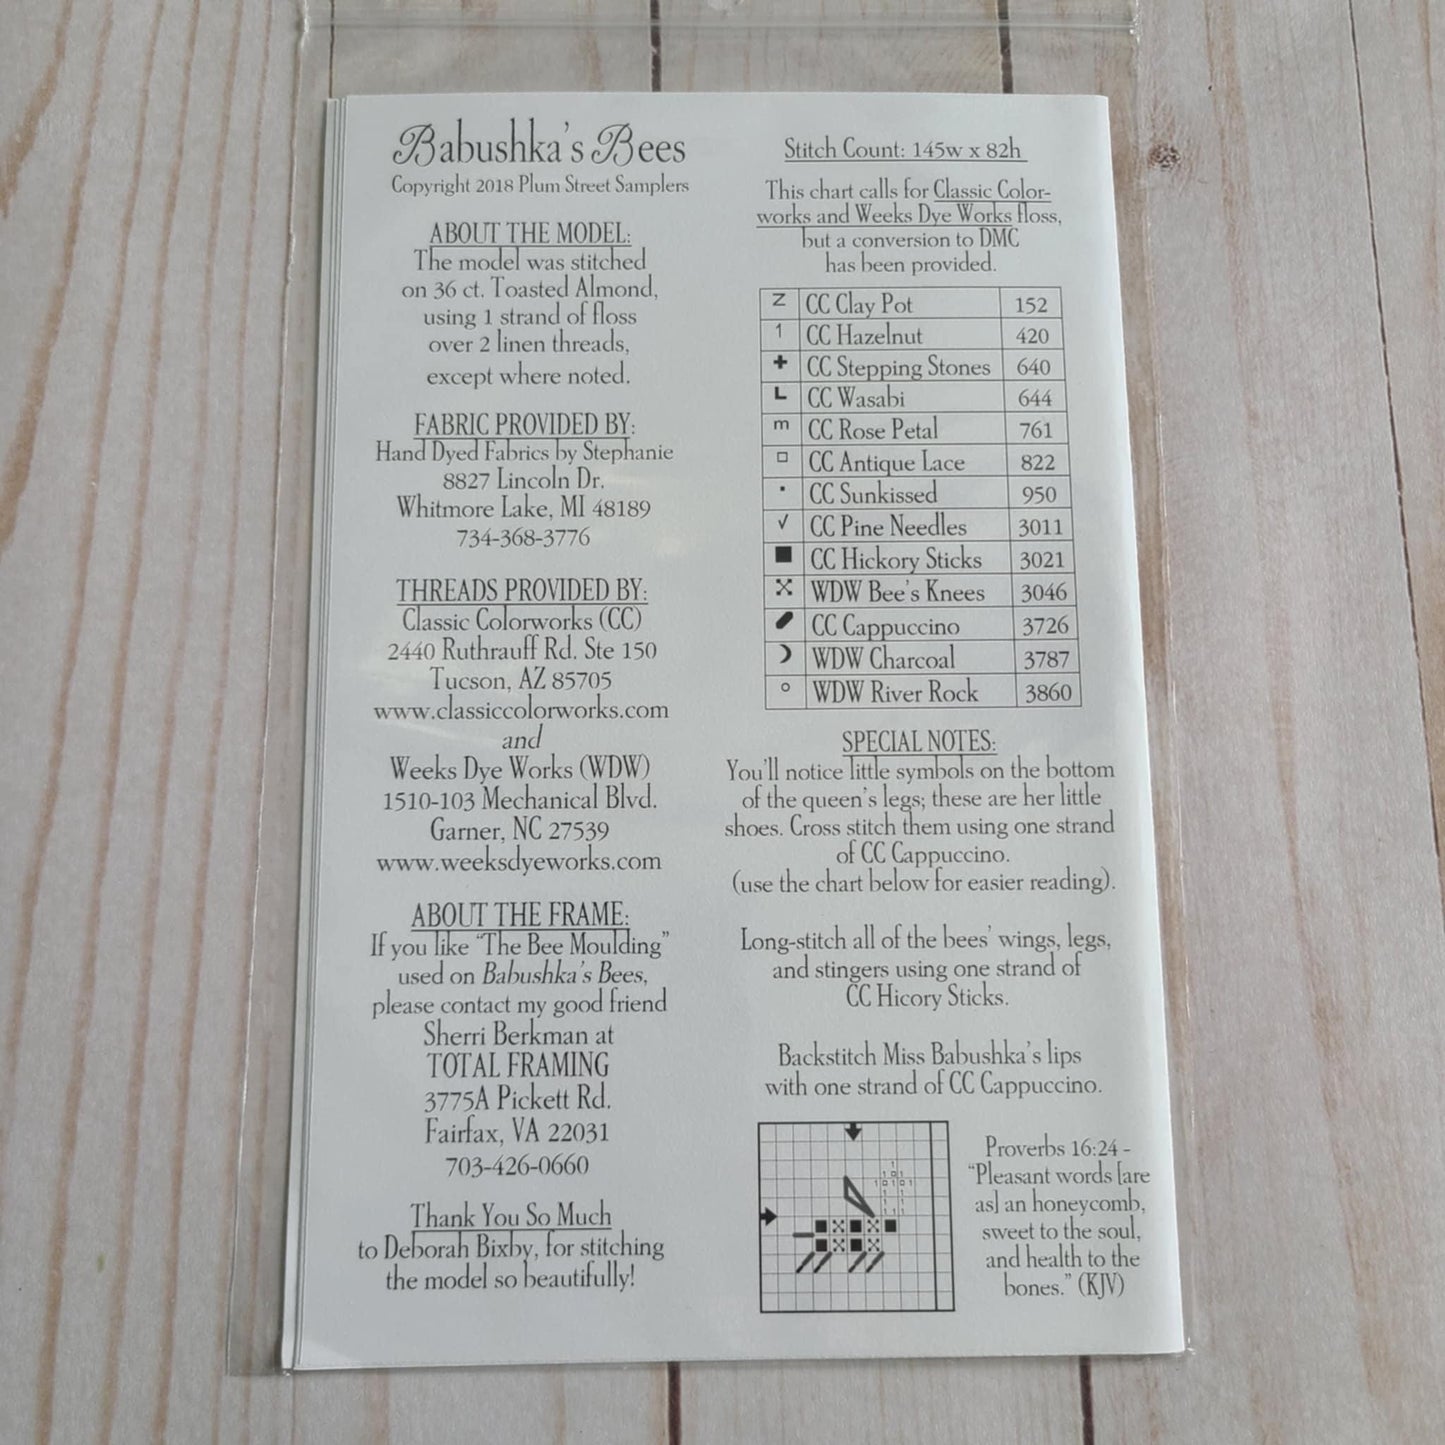 Babushka's Bees
Copyright 2018 Plum Street Samplers
ABOUT THE MODEL:
The model was stitched
on 36 ct. Toasted Almond,
using 1 strand of floss
over 2 linen threads,
except where noted.
FABRIC PROVIDED BY:
Hand Dyed Fabrics by Stephanie
8827 Lincoln Dr.
Whitmore Lake, MI 48189
734-368-3776
THREADS PROVIDED BY:
Classic Colorworks (CC)
2440 Ruthrauff Rd. Ste 150
Tucson, AZ 85705
www.classiccolorworks.com
and
Weeks Dye Works (WDW)
1510-103 Mechanical Blvd.
Garner, NC 27539
www.weeksdyeworks.com
ABOUT THE FRAME:
If you like "The Bee Moulding"
used on Babushka's Bees,
please contact my good friend
Sherri Berkman at
TOTAL FRAMING
3775A Pickett Rd.
Fairfax, VA 22031
703-426-0660
Thank You So Much
to Deborah Bixby, for stitching
the model so beautifully!
Stitch Count: 145w x 82h
This chart calls for Classic Color-
works and Weeks Dye Works floss,
but a conversion to DMC
has been provided.
Z CC Clay Pot 152
1 CC Hazelnut 420
✚ CC Stepping Stones 640
L CC Wasabi 644
m CC Rose Petal 761
□ CC Antique Lace 822
· CC Sunkissed 950
√ CC Pine Needles 3011
■ CC Hickory Sticks 3021
WDW Bee's Knees 3046
CC Cappuccino 3726
WDW Charcoal 3787
○ WDW River Rock 3860
SPECIAL NOTES:
You'll notice little symbols on the bottom
of the queen's legs; these are her little
shoes. Cross stitch them using one strand
of CC Cappuccino.
(use the chart below for easier reading).
Long-stitch all of the bees' wings, legs,
and stingers using one strand of
CC Hicory Sticks.
Backstitch Miss Babushka's lips
with one strand of CC Cappuccino.
Proverbs 16:24 -
"Pleasant words [are
as] an honeycomb,
sweet to the soul,
and health to the
bones." (KJV)